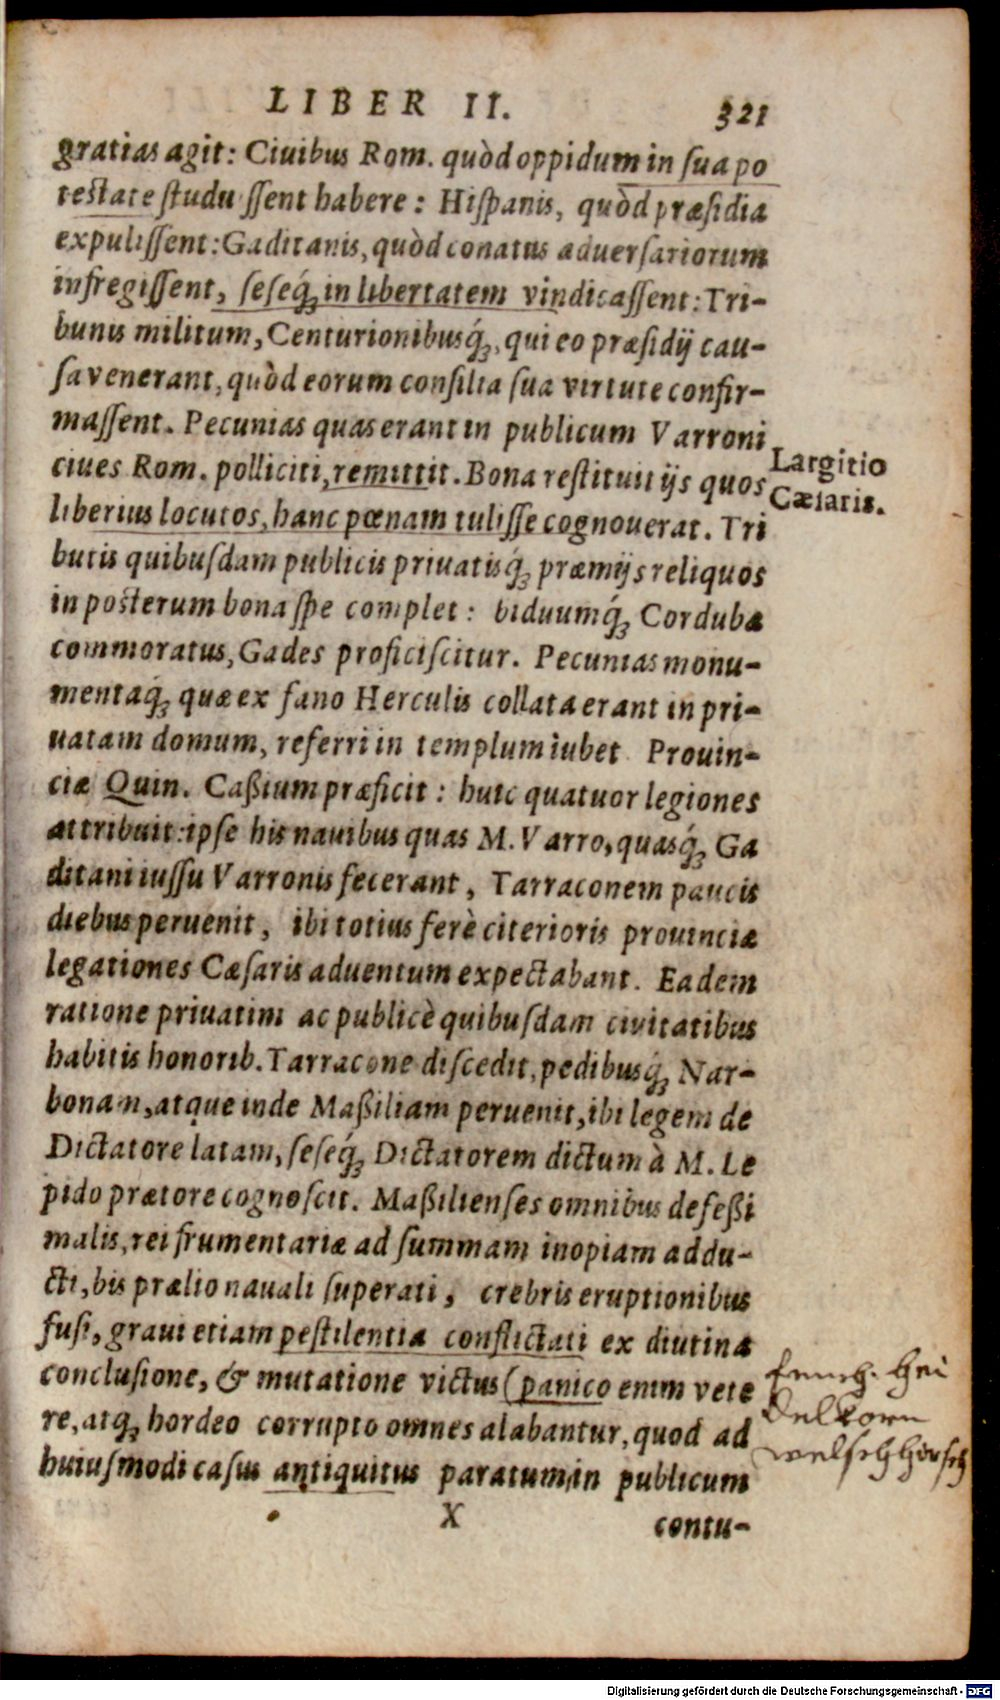 LIBER II. 321
gratias agit: Ciuibus Rom. quòd oppidum in ſua po
teſtate ſtudu ſſent habere: Hiſpanis, quòd præſidia
expuliſſent: Gaditanis, quòd conatus aduerſariorum
infregiſſent, ſeſeq́ꝫ in libertatem vindicaſſent: Tri-
bunis militum, Centurionibusq́ꝫ, qui eo præſidij cau-
ſa venerant, quòd eorum conſilia ſua virtute confir-
maſſent. Pecunias quas erant in publicum Varroni
ciues Rom. polliciti, remittit. Bona reſtituit ijs quos
Largitio
Cæſaris.
liberius locutos, hanc pœnam tuliſſe cognouerat. Tri
butis quibuſdam publicis priuatisq́ꝫ præmijs reliquos
in poſterum bona ſpe complet: biduumq́ꝫ Cordubæ
commoratus, Gades proficiſcitur. Pecunias monu-
mentaq́ꝫ quæ ex fano Herculis collata erant in pri-
uatam domum, referri in templum iubet. Prouin-
ciæ Quin. Caßium præficit: huic quatuor legiones
attribuit: ipſe his nauibus quas M. Varro, quasq́ꝫ Ga
ditani iuſſu Varronis fecerant, Tarraconem paucis
diebus peruenit, ibi totius ferè citerioris prouinciæ
legationes Cæſaris aduentum expectabant. Eadem
ratione priuatim ac publicè quibuſdam civitatibus
habitis honorib. Tarracone diſcedit, pedibusq́ꝫ Nar-
bonam, atque inde Maßiliam peruenit, ibi legem de
Dictatore latam, ſeſeq́ꝫ Dictatorem dictum à M. Le
pido prætore cognoſcit. Maßilienſes omnibus defeßi
malis, rei frumentariæ ad ſummam inopiam addu-
cti, bis prælio nauali ſuperati, crebris eruptionibus
fuſi, graui etiam peſtilentia conflictati ex diutina
concluſione, & mutatione victus (panico enim vete
re, atqꝫ hordeo corrupto omnes alabantur, quod ad
huiuſmodi caſus antiquitus paratum in publicum
fench. Hei
delkorn
welſchhirſch
X contu-
Digitalisierung gefördert durch die Deutsche Forschungsgemeinschaft - DFG